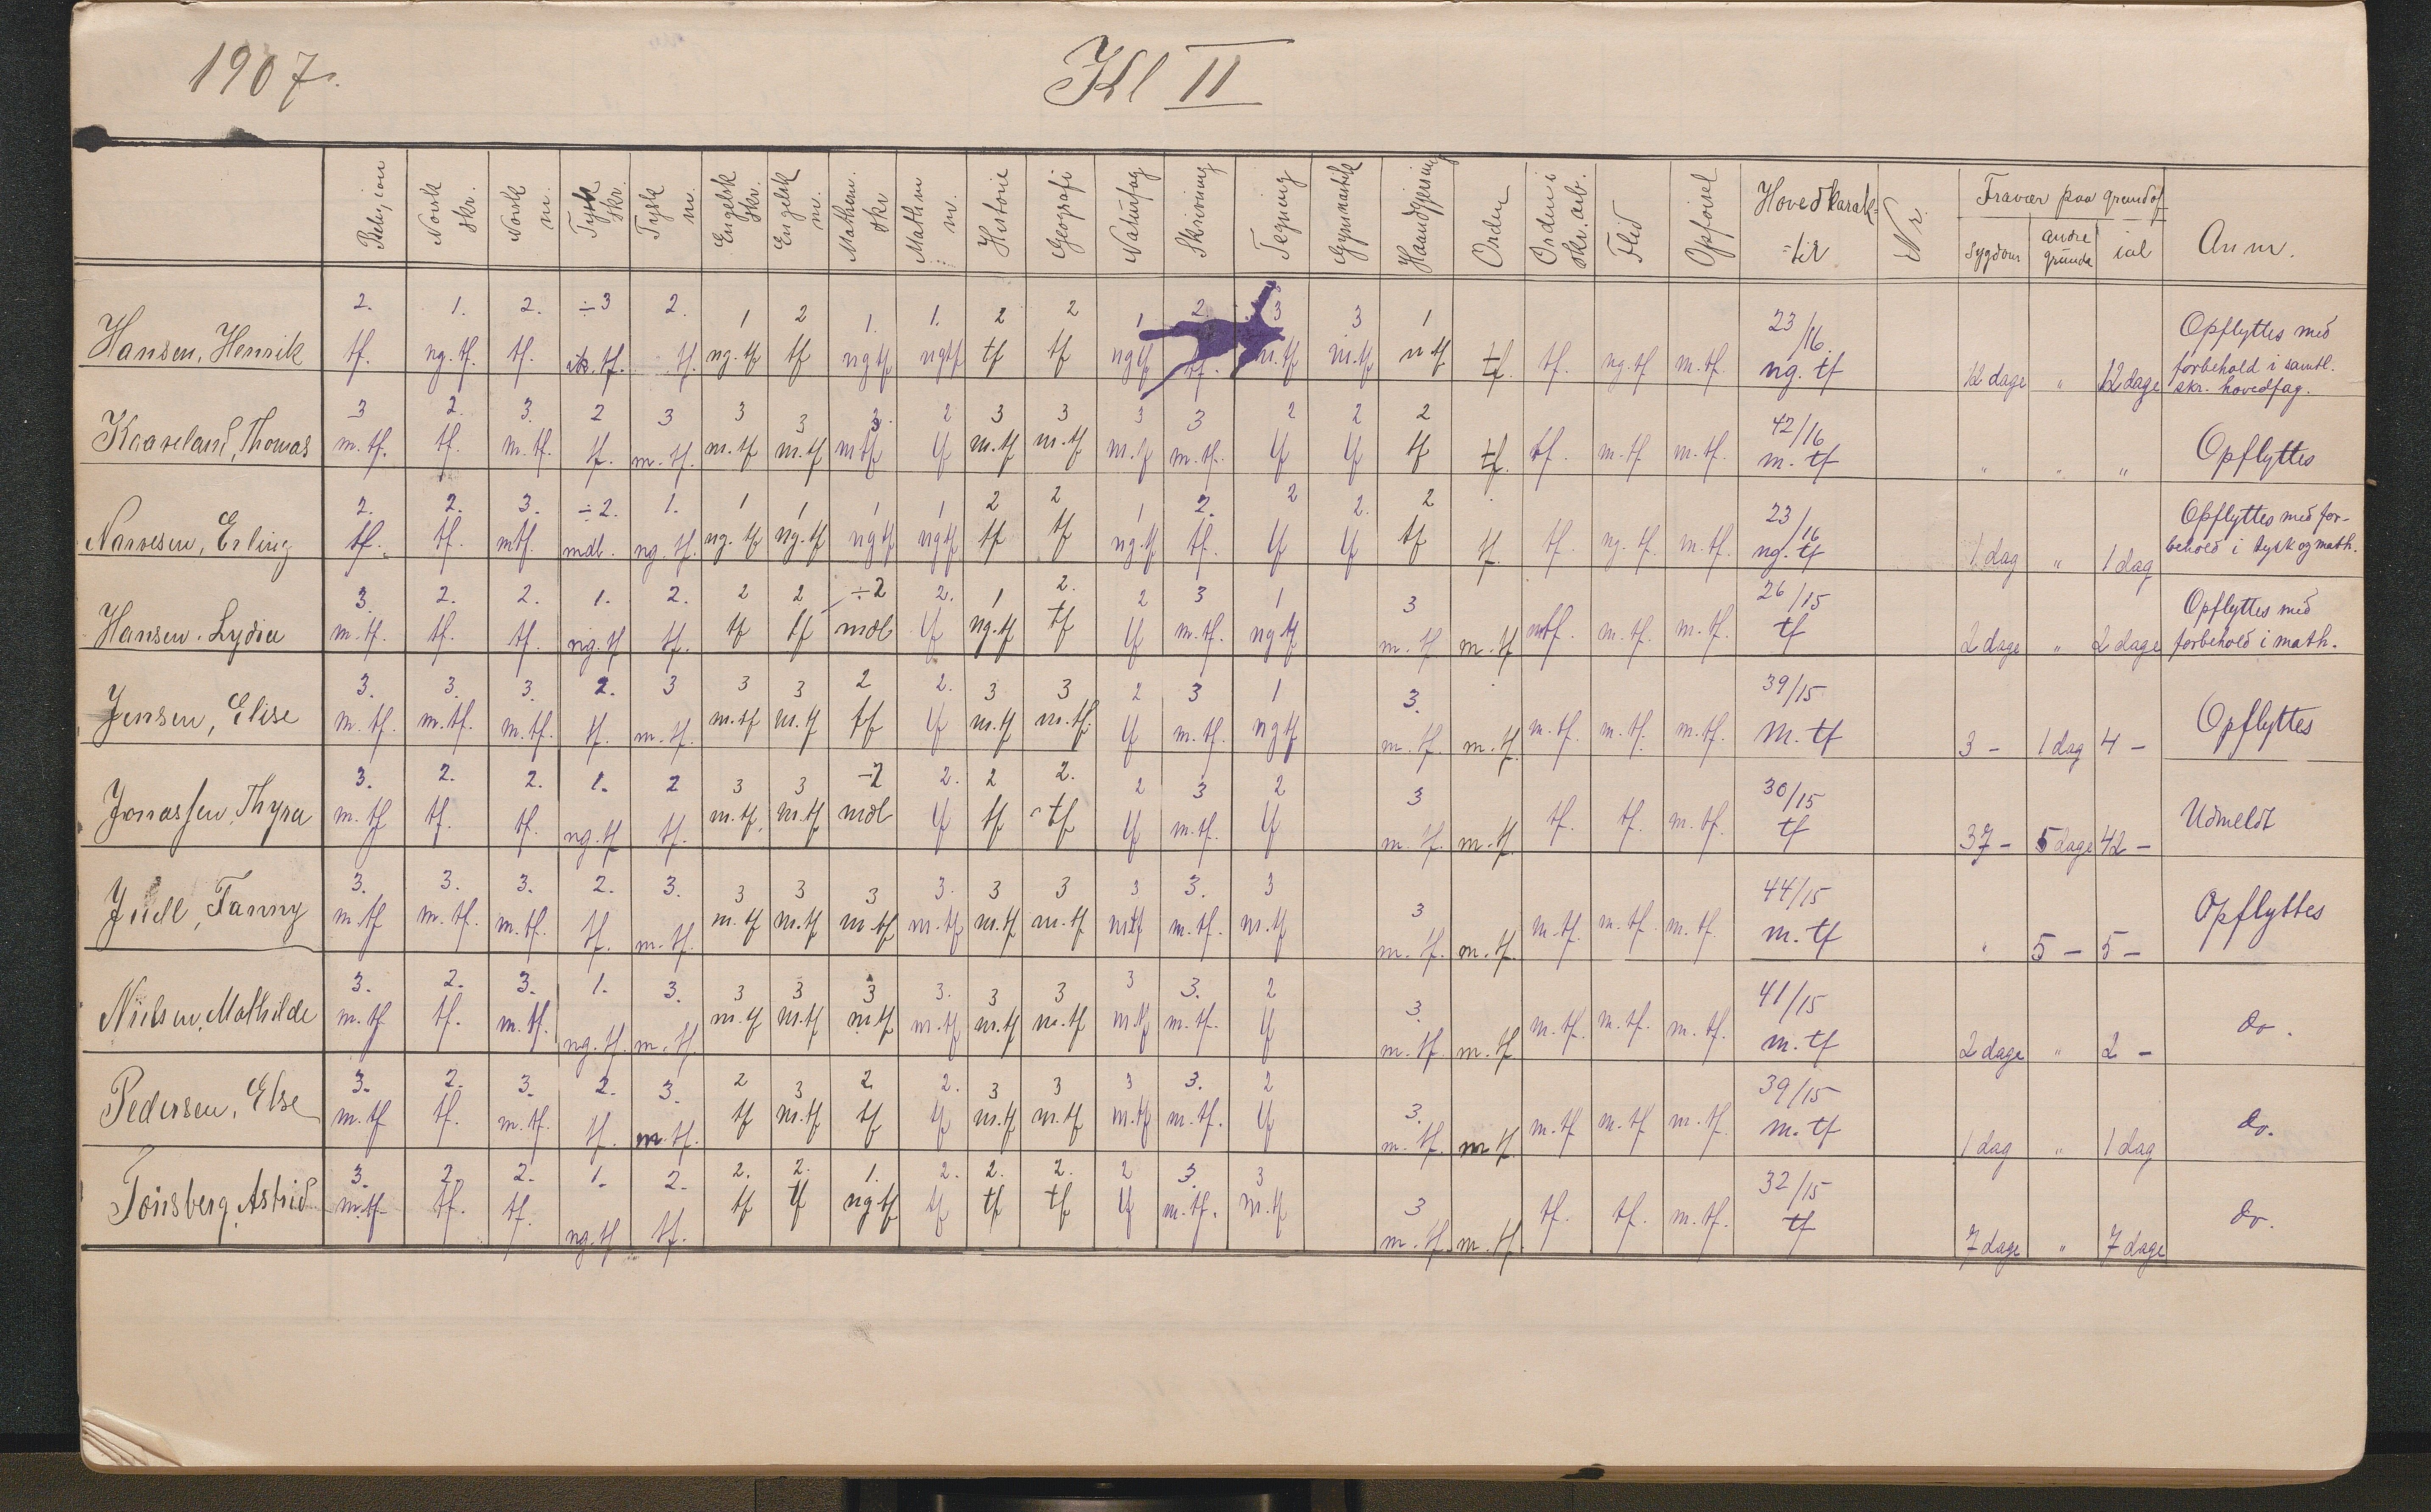 1907.
Kl II
Religion Norsk skr. Norsk m. Tysk skr. Tysk m. Engelsk skr. Engelsk m. Mathem. skr Mathem m. Historie Geografi Naturfag Skrivning Tegning Gymnastik Haandgjerning Orden Orden i skr. arb. Flid Opførsel Hovedkarak= =ter Nr. Fravær paa grund af sygdom andre grunde ial Anm.
2. 1. 2. ÷3 2. 1 2 1. 1. 2 2 1 2. 3 3 1 23/16 Opflyttes med
Hansen, Henrik tf. ng. tf. tf. tf. ng. tf tf ng tf ng tf tf tf ng tf tf. m. tf m. tf tf. tf. ng. tf m. tf. ng. tf 12 dage " 12 dage forbehold i samtl.
skr. hovedfag.
3 2. 3. 2 3 3 3 3. 2 3 3 3 3 2 2 2 42/16
Kaaveland, Thomas m. tf. tf. m. tf. tf. m. tf. m. tf m. tf m tf tf m. tf m. tf m. tf m. tf. tf tf tf tf. tf. m. tf m. tf. m. tf " " " Opflyttes
2. 2. 3. ÷2. 1. 1 1 1 1 2 2 1 2. 2 2. 2 23/16 Opflyttes med for-
Narvesen, Erling tf. tf. mtf. mdl. ng. tf. ng. tf ng. tf ng tf ng tf tf tf ng. tf tf. tf tf tf tf. tf. ng. tf. m. tf. ng. tf 1 dag " 1 dag behold i tysk og math.
3. 2. 2. 1. 2. 2 2 ÷2 2. 1 2. 2 3 1 3 26/15 Opflyttes med
Hansen. Lydia m. tf. tf. tf. ng. tf tf. tf tf mdl tf ng. tf tf tf m. tf. ng tf m. tf m. tf mtf. m. tf. m. tf. tf 2 dage " 2 dage forbehold i math.
3. 3. 3. 2. 3 3 3 2 2. 3 3 2 3 1 3. 39/15
Jensen, Elise m. tf. m. tf. m. tf. tf. m. tf. m. tf m. tf tf tf m. tf m. tf. tf m. tf. ng tf m. tf. m. tf. m. tf. m. tf. m. tf. m. tf 3 - 1 dag 4 - Opflyttes
3. 2. 2. 1. 2 3 3 ÷2 2. 2 2. 2 3 2 3 30/15
Jonassen, Thyra m. tf tf. tf. ng. tf tf. m. tf. m. tf mdl tf tf tf tf m. tf. tf m. tf. m. tf. tf. tf. m. tf. tf 37 - 5 dage 42 - Udmeldt
3. 3. 3. 2. 3. 3 3 3 3. 3 3 3 3. 3 3 44/15
Juell, Fanny m. tf m. tf. m. tf. tf. m. tf. m. tf m. tf m. tf m. tf m. tf m. tf mtf m. tf. m. tf m. tf. m. tf. m. tf. m. tf. m. tf. m. tf " 5 - 5 - Opflyttes
3. 2. 3. 1. 3. 3 3 3 3. 3 3 3 3. 2 3. 41/15
Nielsen, Mathilde m. tf tf. m. tf. ng. tf. m. tf. m. tf m. tf m. tf m. tf m. tf m. tf m. tf m. tf. tf m. tf. m. tf m. tf. m. tf. m. tf. m. tf 2 dage " 2 - do.
3. 2. 3. 2. 3. 2 3 2 2. 3 3 3 3. 2 3. 39/15
Pedersen, Else m. tf tf. m. tf. tf. m. tf. tf m. tf tf tf m. tf m. tf m. tf m. tf. tf m. tf. m tf m. tf m. tf m. tf. m. tf 1 dag " 1 dag do.
3. 2. 2. 1. 2. 2. 2. 1. 2. 2. 2. 2 3. 3 3 32/15
Tønsberg, Astrid m. tf tf. tf. ng. tf tf. tf tf ng tf tf tf tf tf m. tf. m. tf m. tf. m. tf. tf. tf. m. tf. tf 7 dage " 7 dage do.